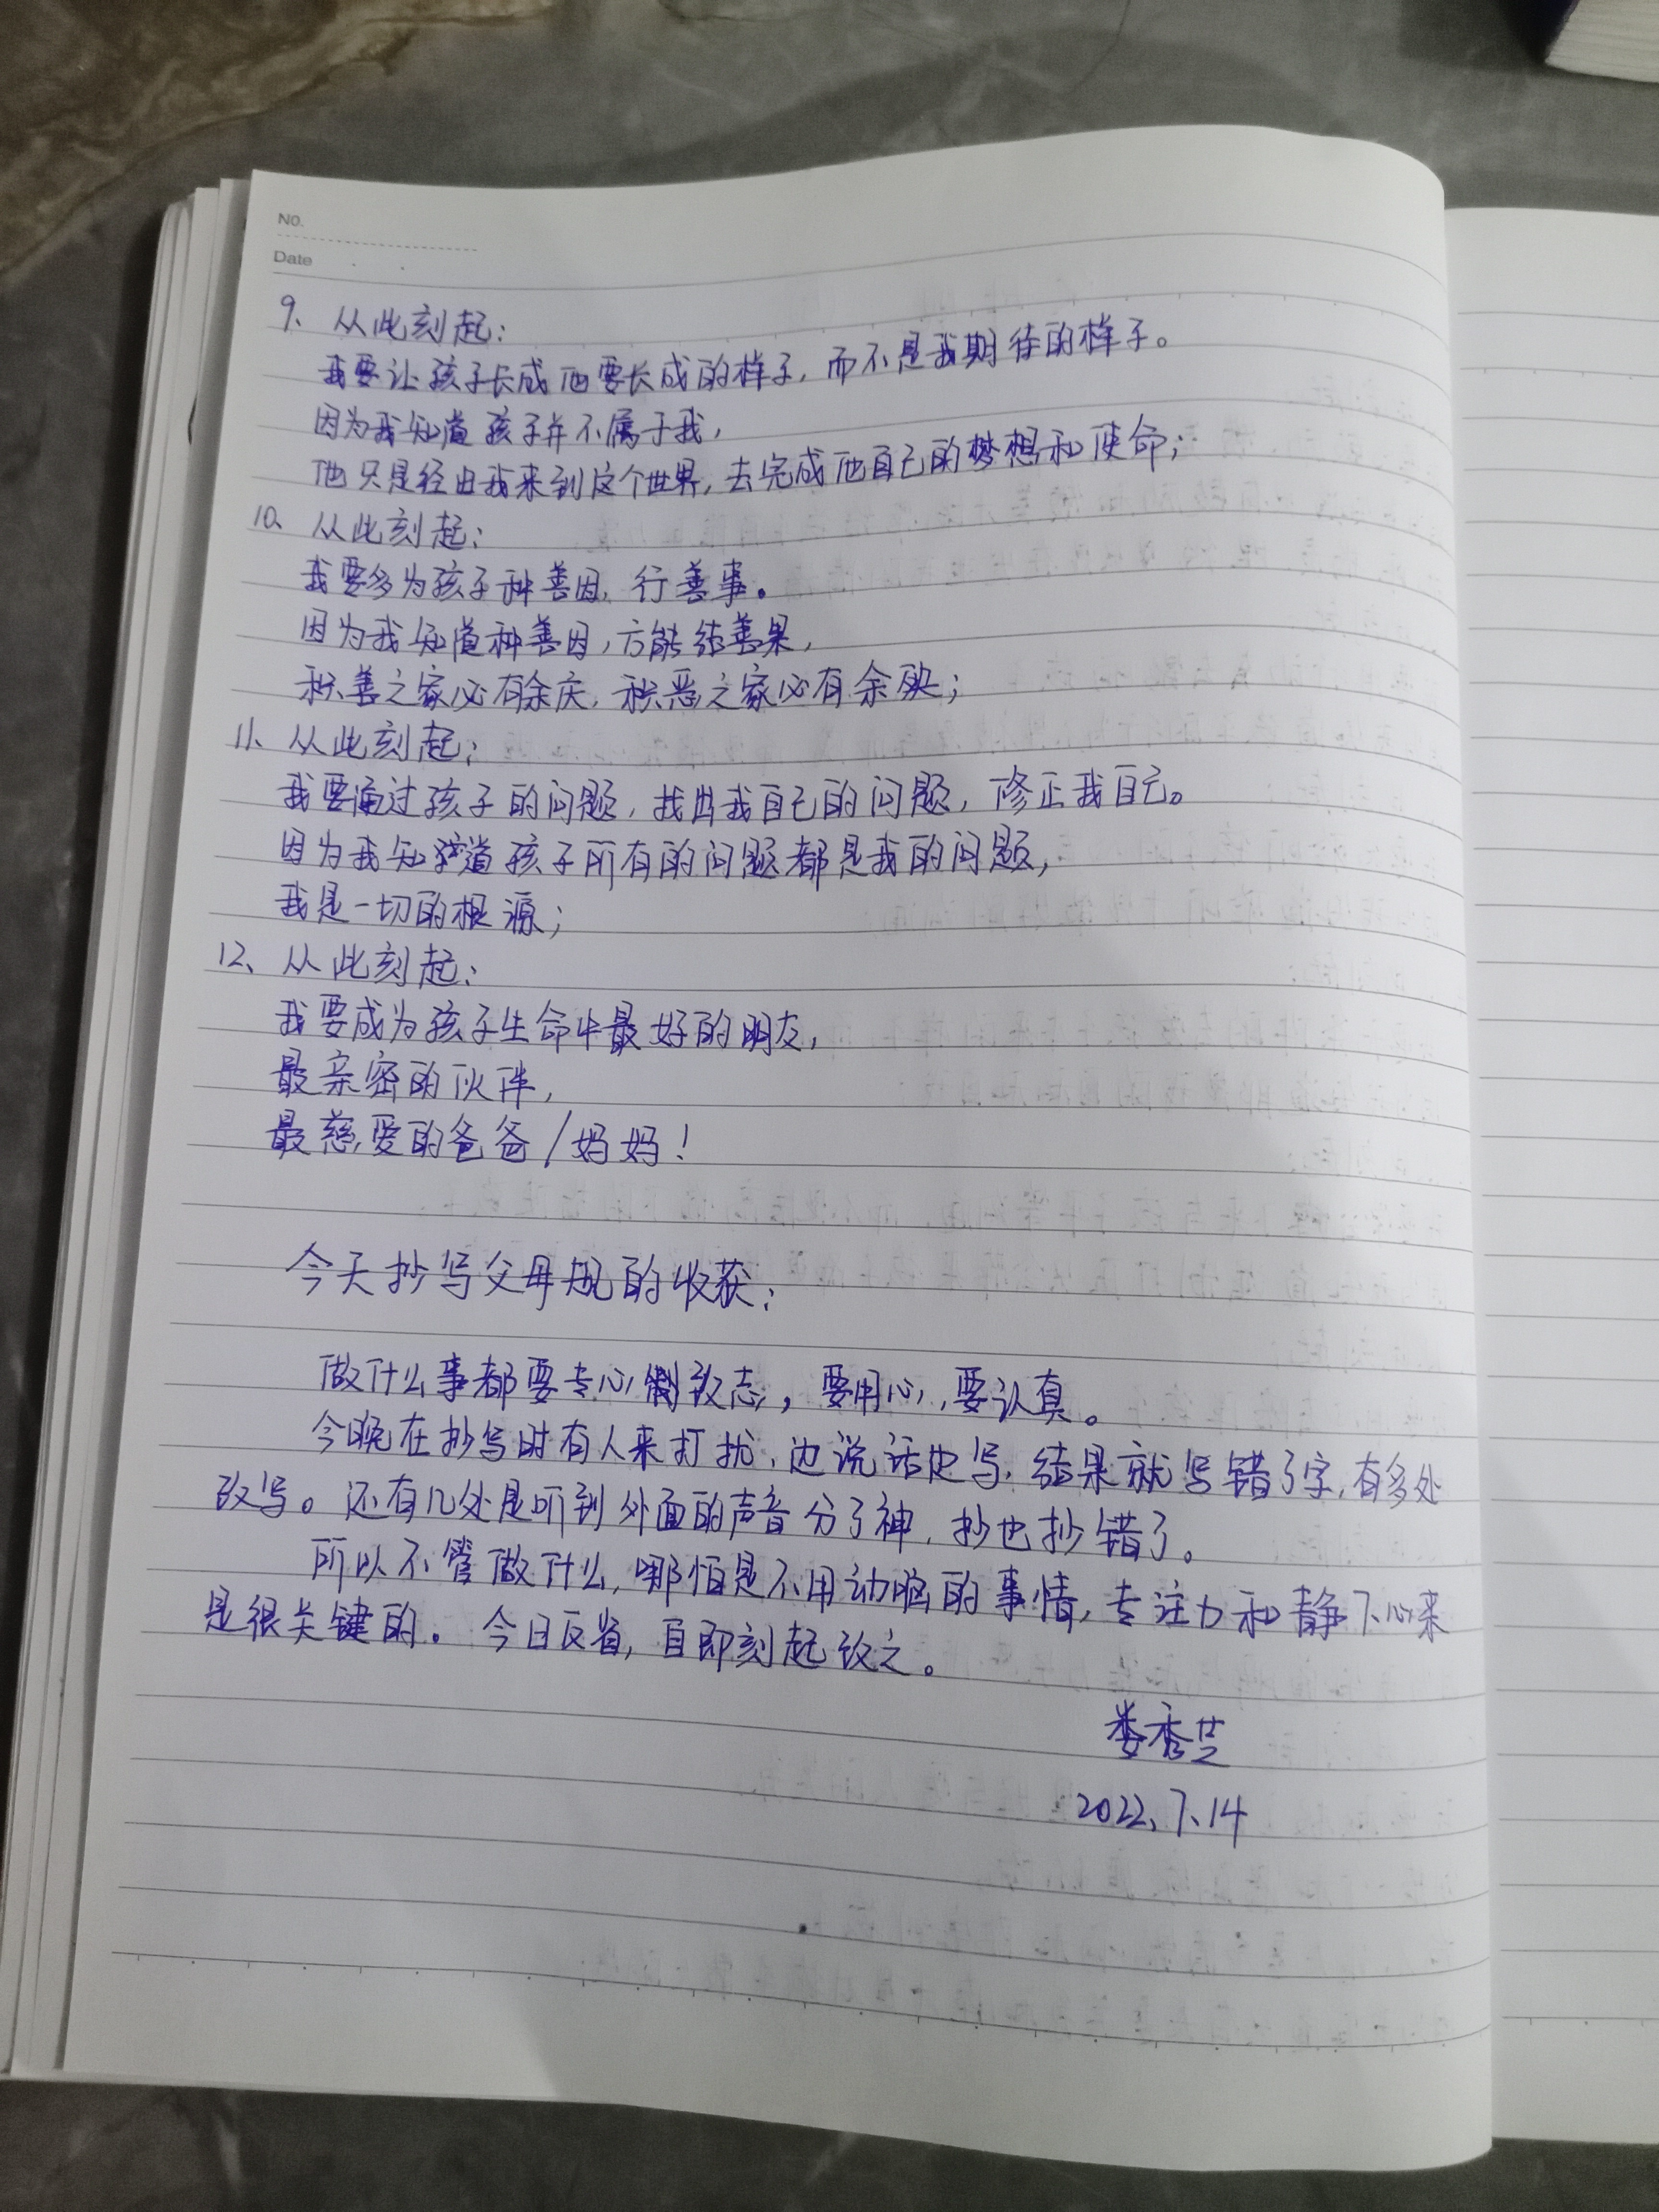 No.
Date
9、从此刻起：
我要让孩子长成他要长成的样子，而不是我期待的样子。
因为我知道孩子并不属于我，
他只是经由我来到这个世界，去完成他自己的梦想和使命；
10、从此刻起：
我要多为孩子种善因，行善事。
因为我知道种善因，方能结善果，
积善之家必有余庆，积恶之家必有余殃；
11、从此刻起：
我要通过孩子的问题，找出我自己的问题，修正我自己。
因为我知道孩子所有的问题都是我的问题，
我是一切的根源；
12、从此刻起：
我要成为孩子生命中最好的朋友，
最亲密的伙伴，
最慈爱的爸爸/妈妈！
今天抄写父母规的收获：
做什么事都要专心致志，要用心，要认真。
今晚在抄写时有人来打扰，边说话边写，结果就写错了字，有多处
改写。还有几处是听到外面的声音分了神，抄也抄错了。
所以不管做什么，哪怕是不用动脑的事情，专注力和静下心来
是很关键的。今日反省，自即刻起改之。
娄秀芝
2022、7、14